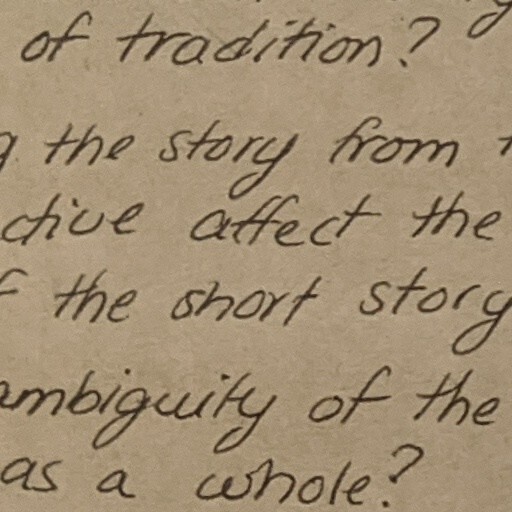 of tradition?
the story from
ctive affect the
the short story
ambiguity of the
as a whole?